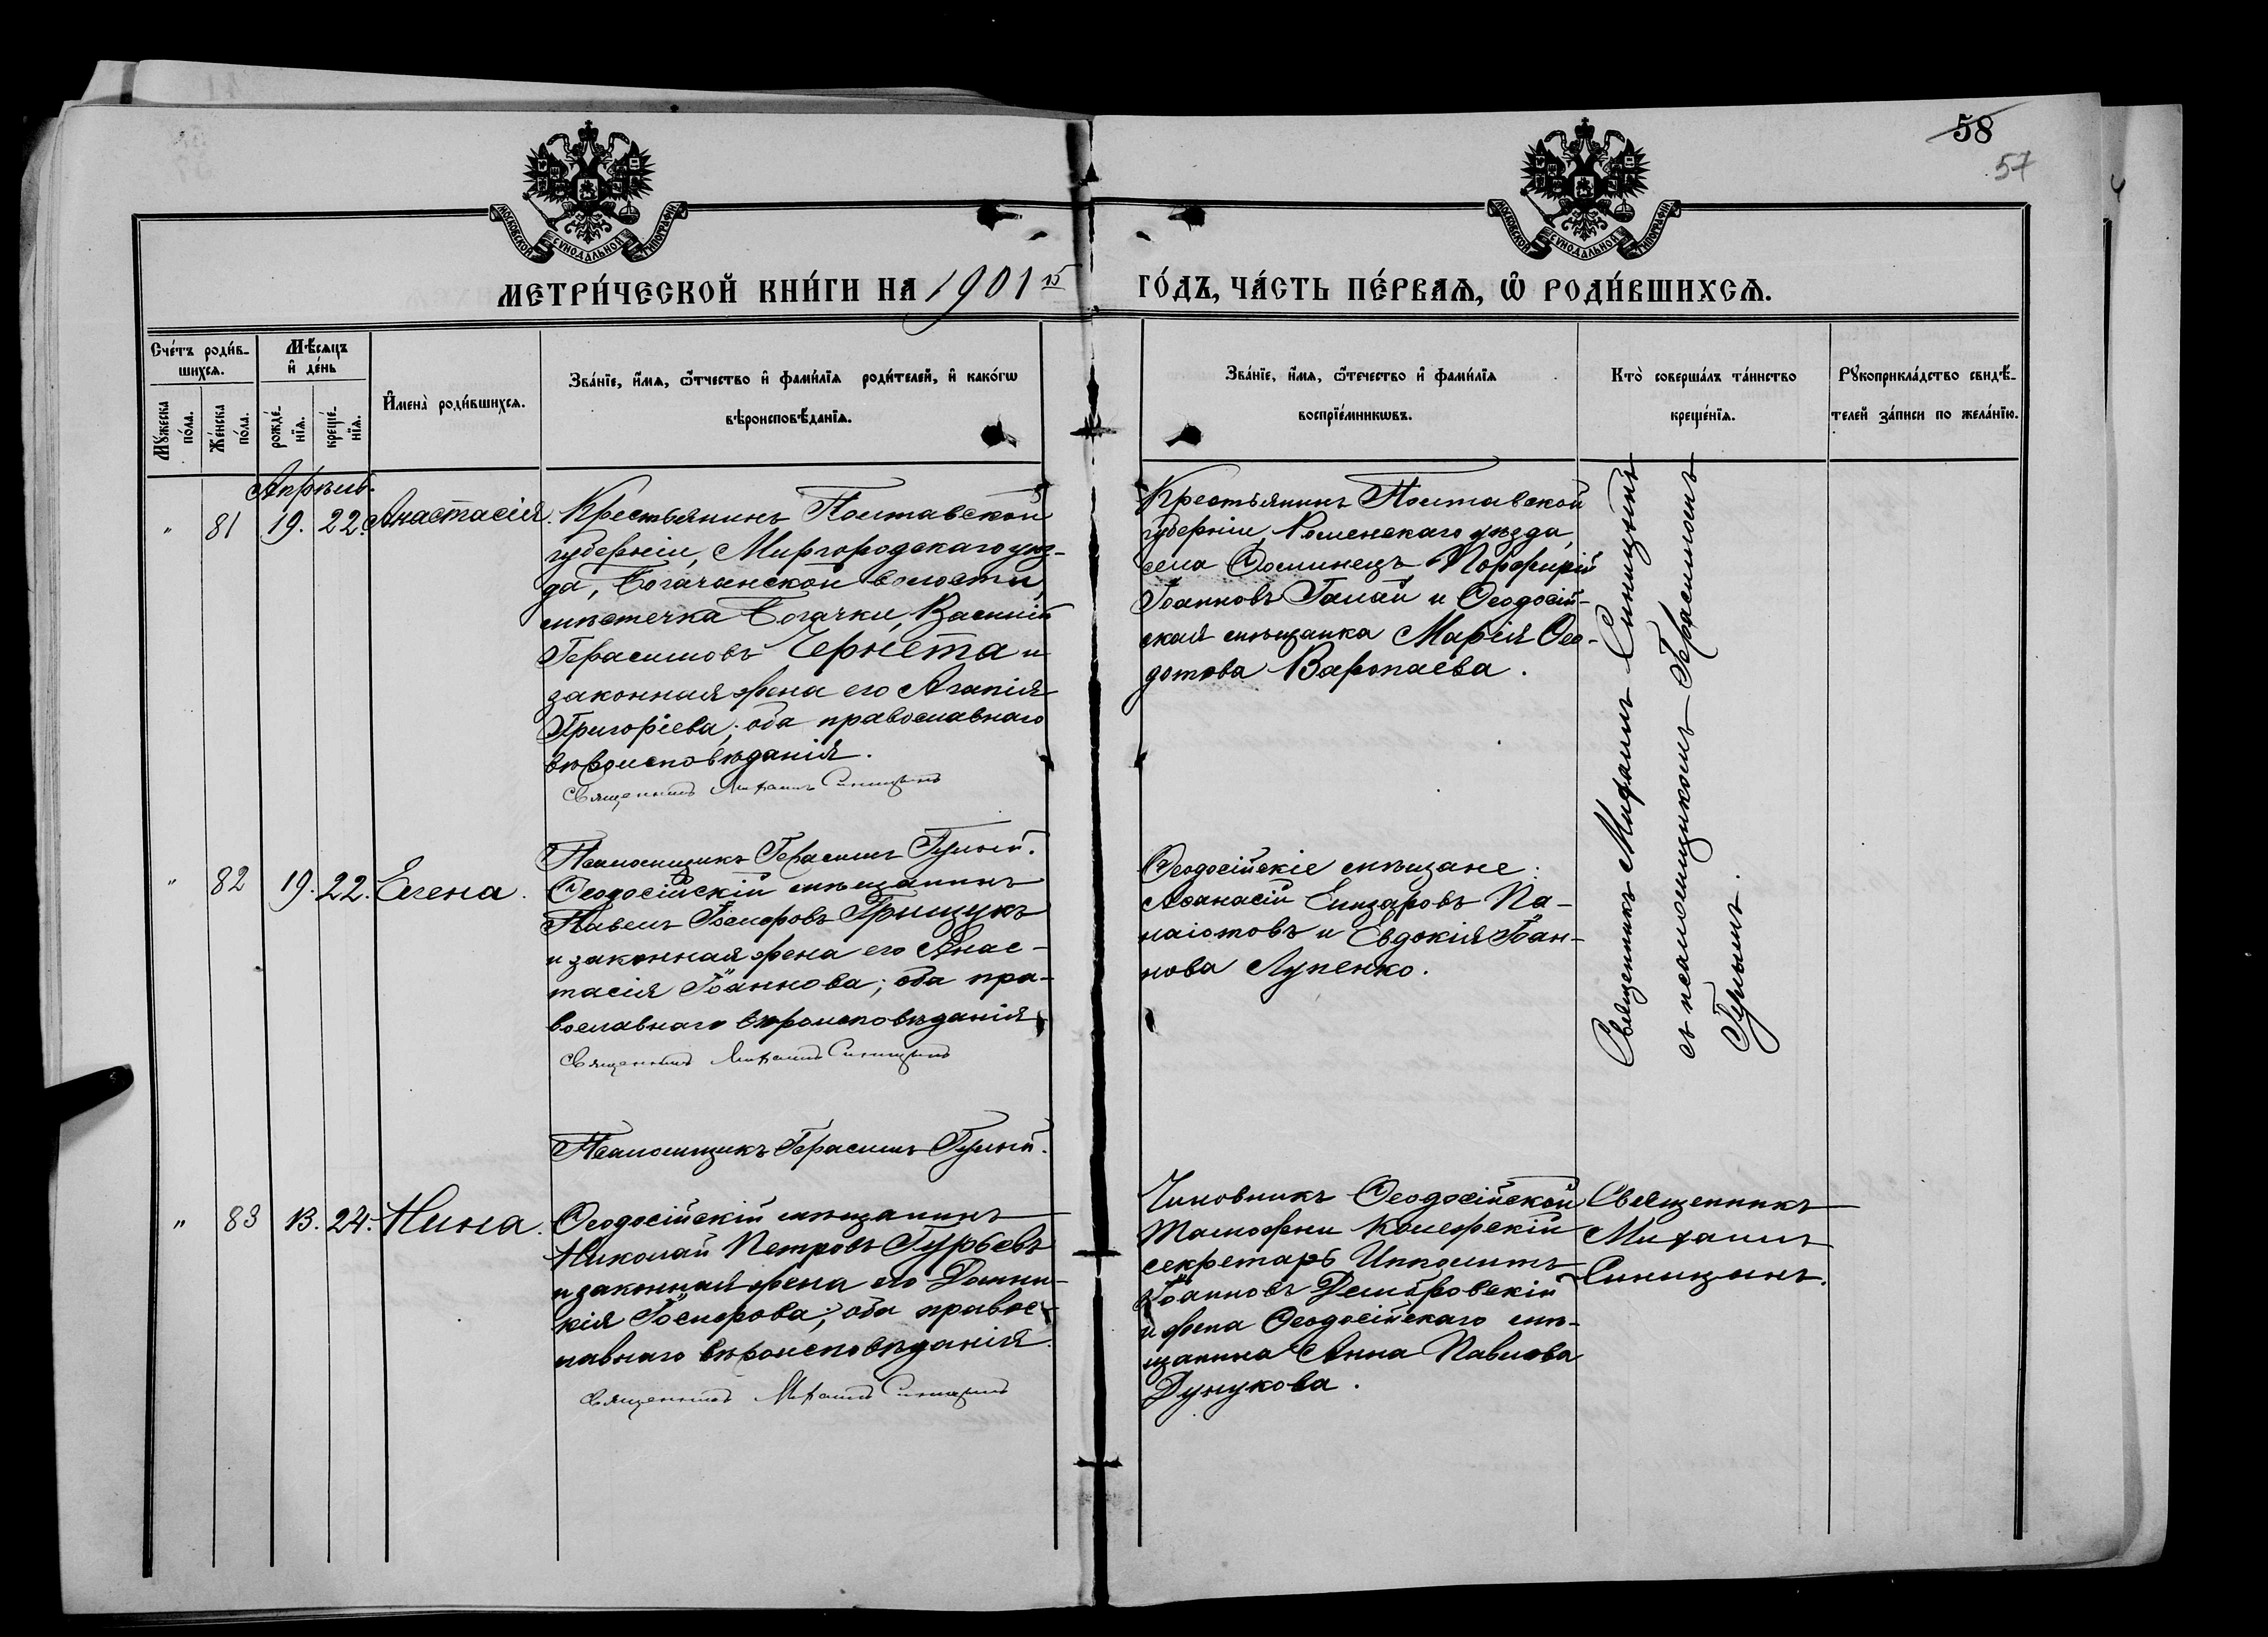 58
57
МОСКОВСКОЙ СѴНОДАЛЬНОЙ ТИПОГРАФІИ
МОСКОВСКОЙ СѴНОДАЛЬНОЙ ТИПОГРАФІИ
МЕТРИ́ЧЕСКОЙ КНИ́ГИ НА 1901й
ГО́ДЪ, ЧА́СТЬ ПЕ́РВАѦ, Ѡ҆ РОДИ́ВШИХСѦ.
Сче́тъ роди́в-
шихсѧ.
Мꙋ́жеска по́ла.
Же́нска по́ла.
Мѣ́сѧцъ
и҆ де́нь
рожде́-
нїѧ.
креще́-
нїѧ.
И҆мена̀ роди́вшихсѧ.
Зва́нїе, и҆́мѧ, ѻ҆́тчество и҆ фами́лїѧ роди́телей, и҆ како́гѡ
вѣроисповѣ́данїѧ.
Зва́нїе, и҆́мѧ, ѻ҆́течество и҆ фами́лїѧ
воспрїе́мникѡвъ.
Кто̀ соверша́лъ та́инство
креще́нїѧ.
Рꙋкоприкла́дство свидѣ́-
телей за́писи по жела́нїю.
Апрѣль.
" 81 19. 22. Анастасія.
Крестьянинъ Полтавской
губерніи, Миргородскаго уѣз-
да, Богачанской волости,
мѣстечка Богачки, Василій
Герасимовъ Чернета и
законная жена его Агапія
Григоріева; оба православнаго
вѣроисповѣданія.
Священникъ Михаилъ Синицынъ
Псаломщикъ Герасимъ Гулый.
Крестьянинъ Полтавской
губерніи, Роменскаго уѣзда,
села Порфирій
Іоанновъ Галай и Ѳеодосій-
ская мѣщанка Марія Ѳео-
дотова Варопаева.
Священникъ Михаилъ Синицынъ
съ псаломщикомъ Герасимомъ
Гулымъ.
" 82 19. 22. Елена.
Ѳеодосійскій мѣщанинъ
Павелъ Іосифовъ Грищукъ
и законная жена его Анас-
тасія Іоаннова; оба пра-
вославнаго вѣроисповѣданія
Священникъ Михаилъ Синицынъ
Псаломщикъ Герасимъ Гулый.
Ѳеодосійскіе мѣщане:
Аѳанасій Елизаровъ Па-
наіотовъ и Евдокія Іоан-
нова Лупенко.
" 83 13. 24. Нина.
Ѳеодосійскій мѣщанинъ
Николай Петровъ Гурьевъ
и законная жена его Домни-
кія Іосифова; оба правос-
лавнаго вѣроисповѣданія.
Священникъ Михаилъ Синицынъ
Чиновникъ Ѳеодосійской
таможни Коллежскій
секретарь Ипполитъ
Іоанновъ Дембровскій
и жена Ѳеодосійскаго мѣ-
щанина Анна Павлова
Дунукова.
Священникъ
Михаилъ
Синицынъ.